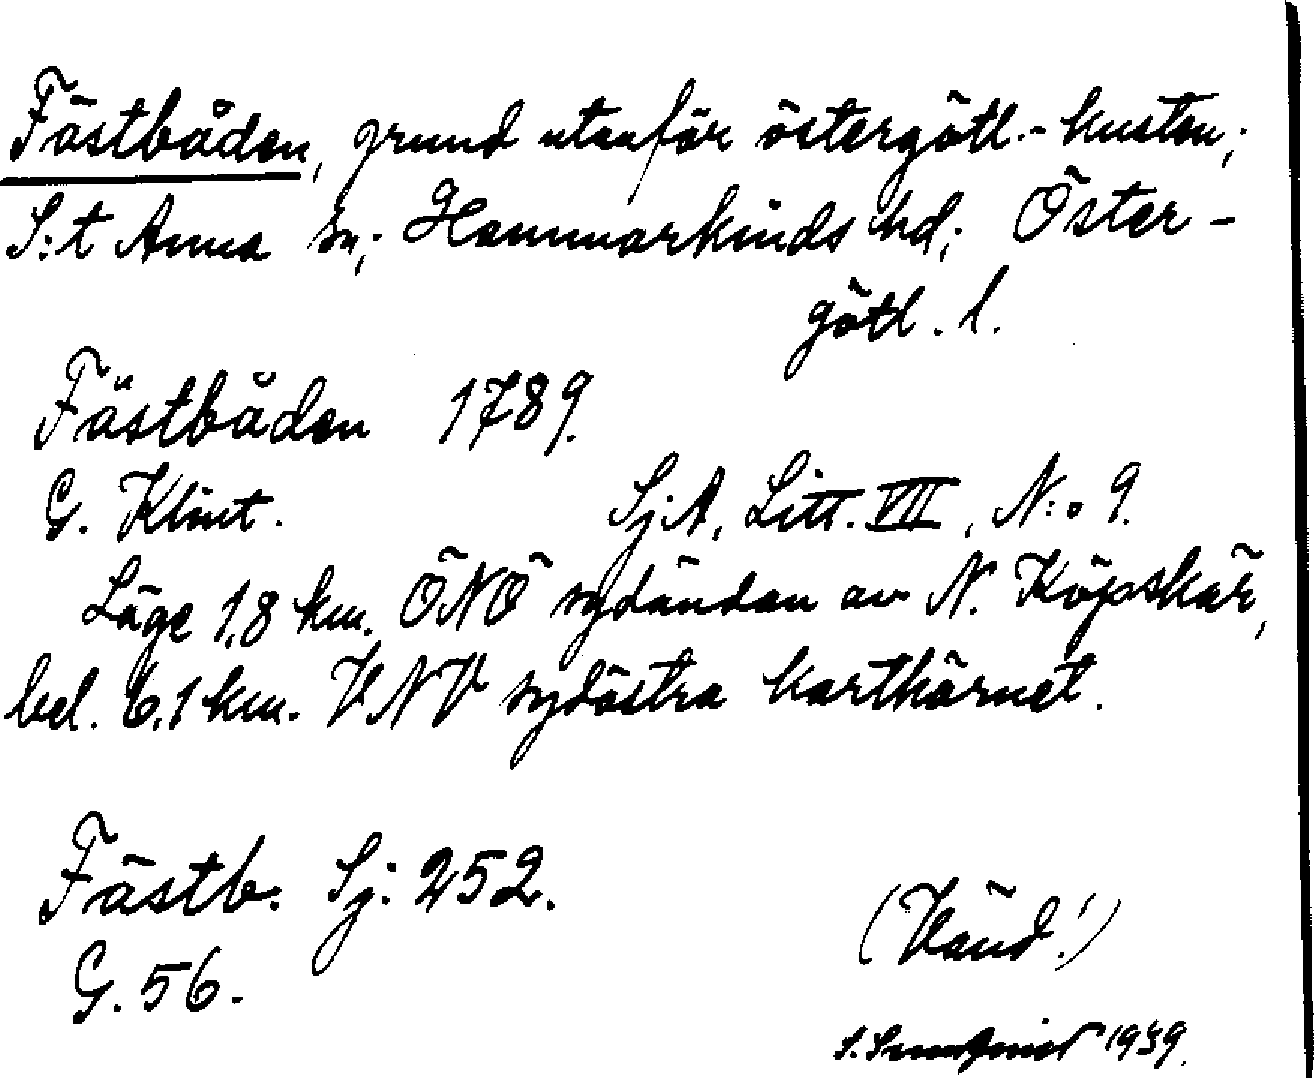 Fästbåden, grund utanför östergötl.-kusten;
S:t Anna sn; Hammarkinds hd; Öster-
götl. l.
Fästbåden 1789.
G. Klint. SjA, Litt. VII, N:o 9.
Läge 1,8 km. ÖNÖ sydändan av N. Köpskär,
bel. 6,1 km. VNV sydöstra karthörnet.
Fästb. Sj: 252.
G. 56.
(Vänd!)
S. 1939.